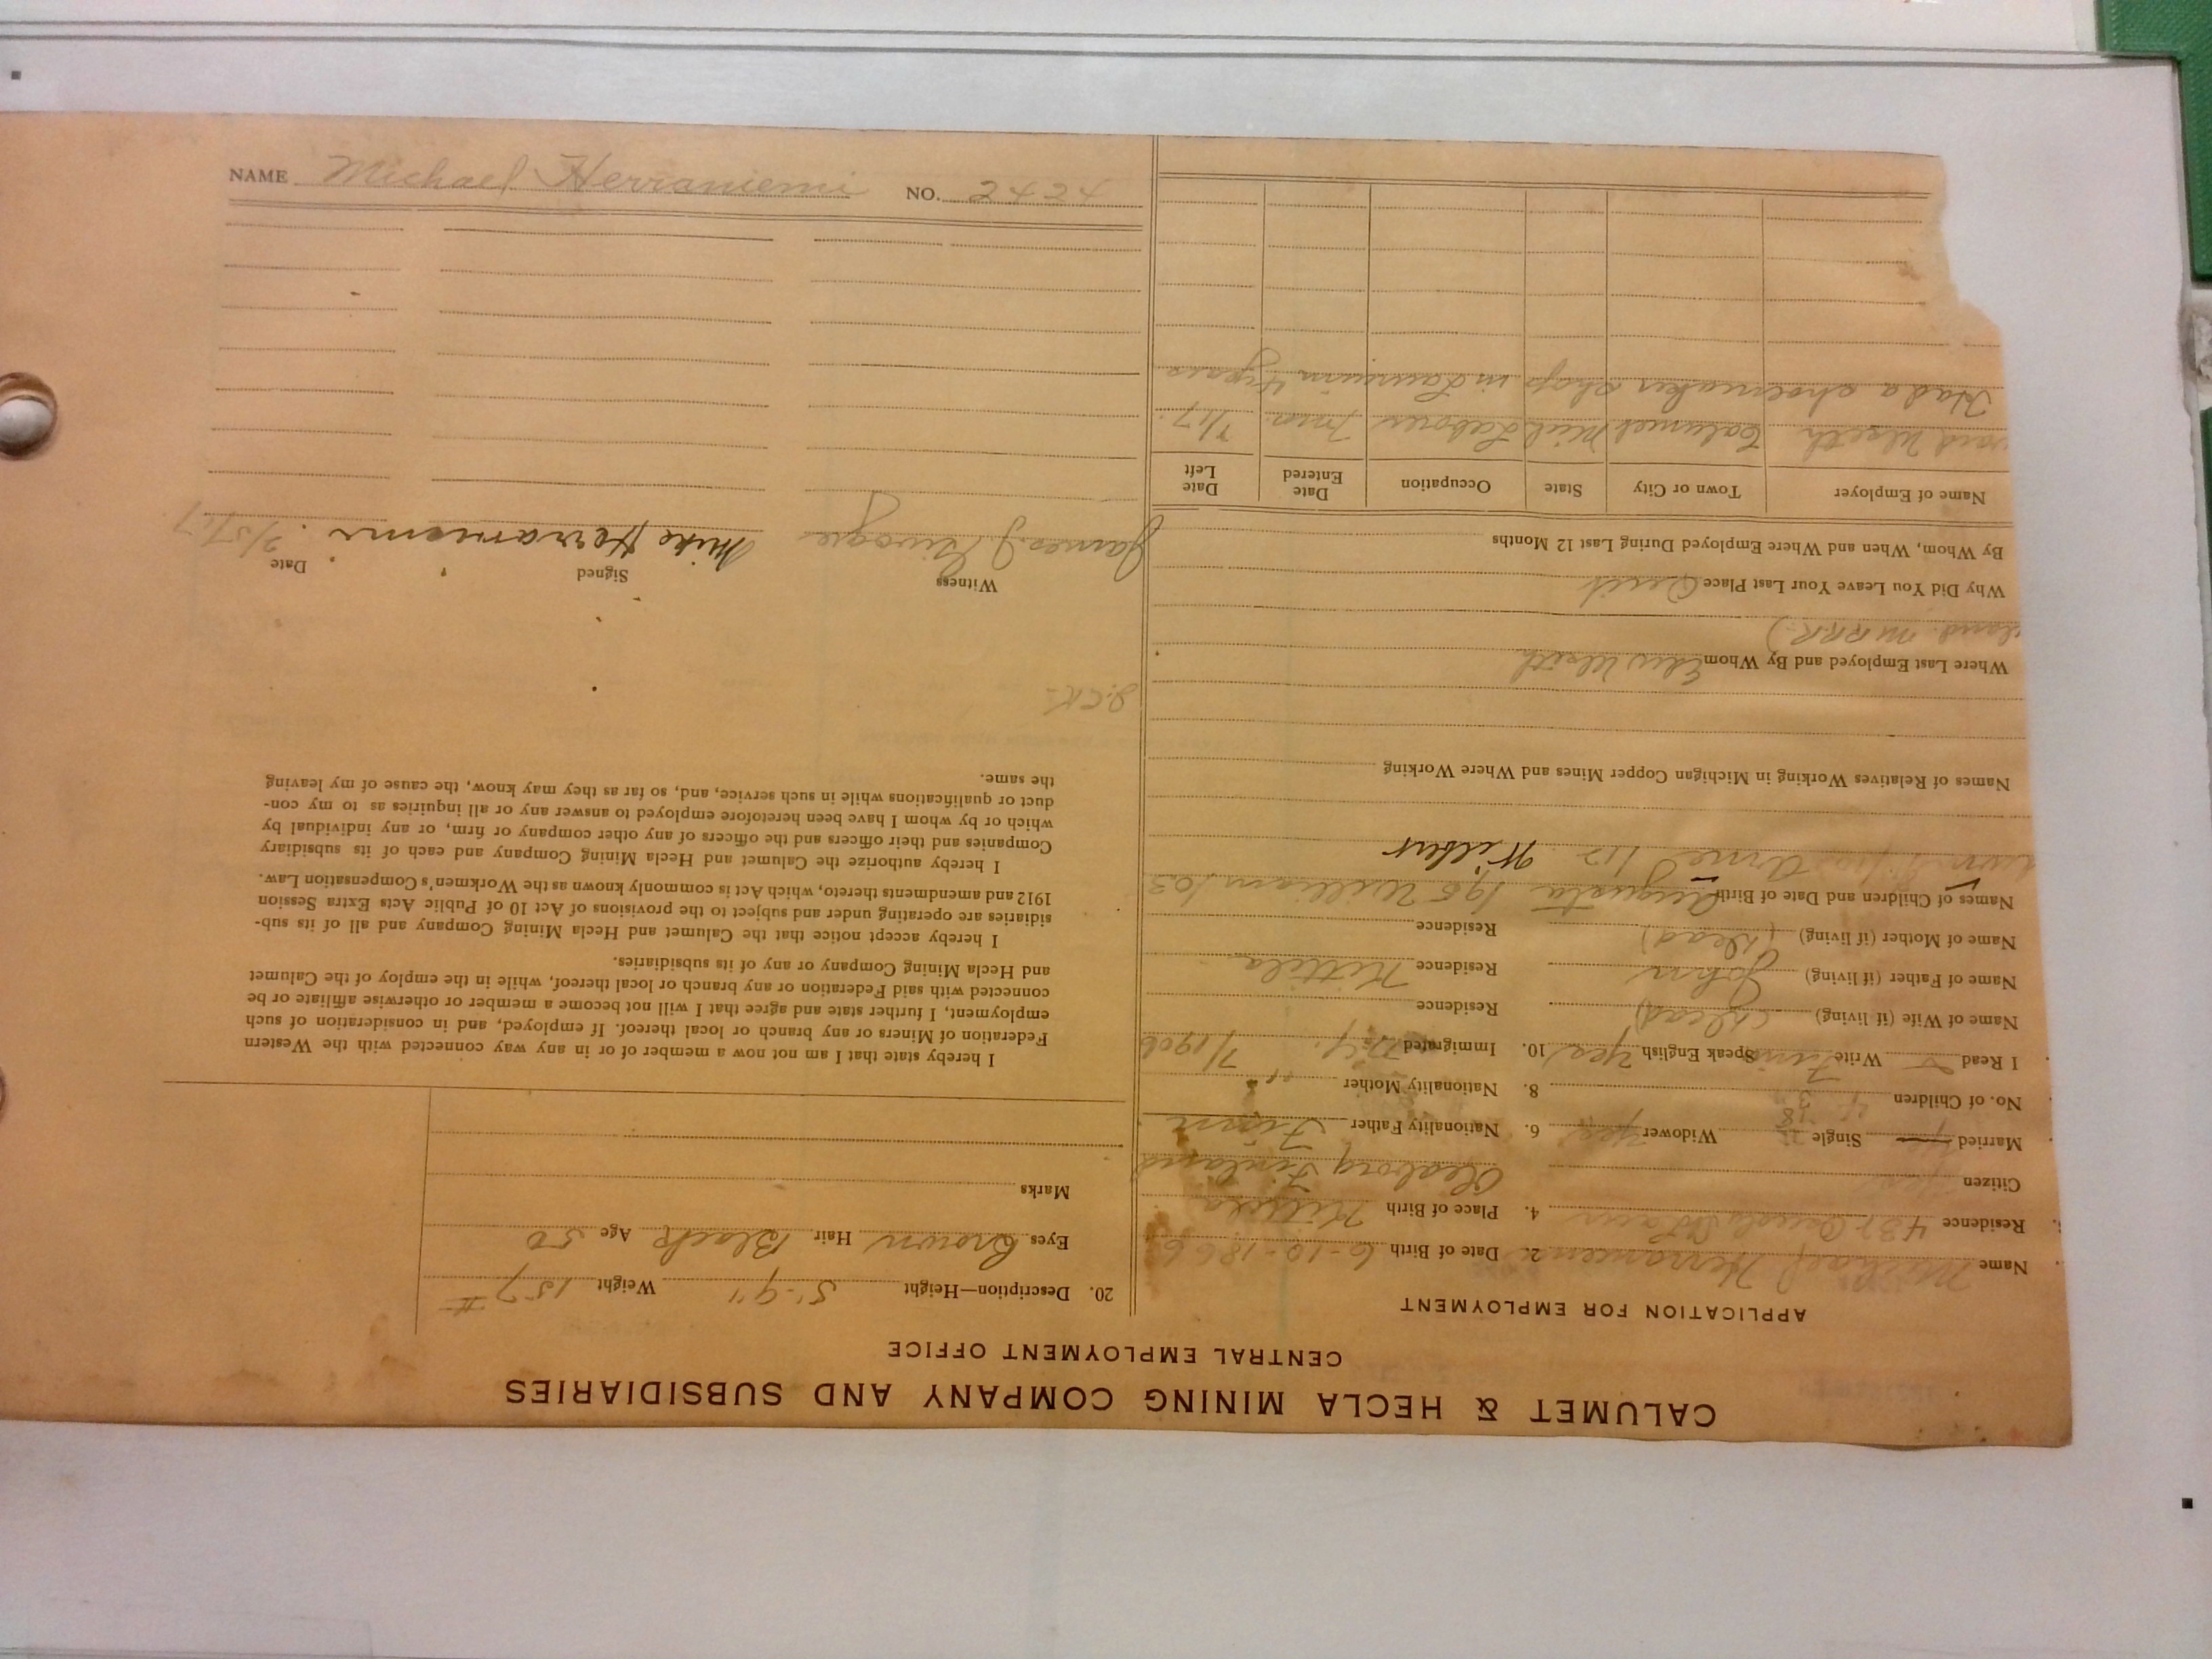 CALUMET & HECLA MINING COMPANY AND SUBSIDIARIES
CENTRAL EMPLOYMENT OFFICE
APPLICATION FOR EMPLOYMENT
Name Michael Herraniemi 2. Date of Birth 6-10-1866
Residence 431 4. Place of Birth Kittila
Citizen Uleaborg Finland
Married Single Widower yes 6. Nationality Father Finn
No. of Children 8. Nationality Mother "
I Read Write Finn Speak English Yes 10. Immigrated N.Y. 7/1906
Name of Wife (if living) (Dead) Residence
Name of Father (if living) John Residence Kittila
Name of Mother (if living) (Dead) Residence
Names of Children and Date of Birth Augusta William /03
Arne /12 Wilbert
Names of Relatives Working in Michigan Copper Mines and Where Working
Where Last Employed and By Whom Edw Ulseth
land. M R.R.R.)
Why Did You Leave Your Last Place Quit
By Whom, When and Where Employed During Last 12 Months
Name of Employer Town or City State Occupation Date Entered Date Left
ward Ulseth Calumet Mich Laborer 7/17.
Had a shoemaker shop in Laurium 4 years
20. Description—Height 5'-9" Weight 157 #
Eyes Brown Hair Black Age 50
Marks
I hereby state that I am not now a member of or in any way connected with the Western
Federation of Miners or any branch or local thereof. If employed, and in consideration of such
employment, I further state and agree that I will not become a member or otherwise affiliate or be
connected with said Federation or any branch or local thereof, while in the employ of the Calumet
and Hecla Mining Company or any of its subsidiaries.
I hereby accept notice that the Calumet and Hecla Mining Company and all of its sub-
sidiaries are operating under and subject to the provisions of Act 10 of Public Acts Extra Session
1912 and amendments thereto, which Act is commonly known as the Workmen's Compensation Law.
I hereby authorize the Calumet and Hecla Mining Company and each of its subsidiary
Companies and their officers and the officers of any other company or firm, or any individual by
which or by whom I have been heretofore employed to answer any or all inquiries as to my con-
duct or qualifications while in such service, and, so far as they may know, the cause of my leaving
the same.
Witness Signed Date
James J Mike Herraniemi
NAME Michael Herraniemi NO. 2424